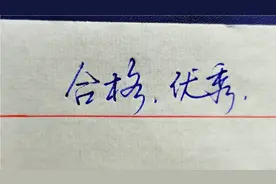 合格、优秀.